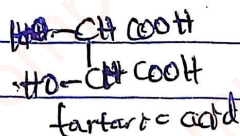 HO-CH COOH
HO-CH COOH
tartaric acid